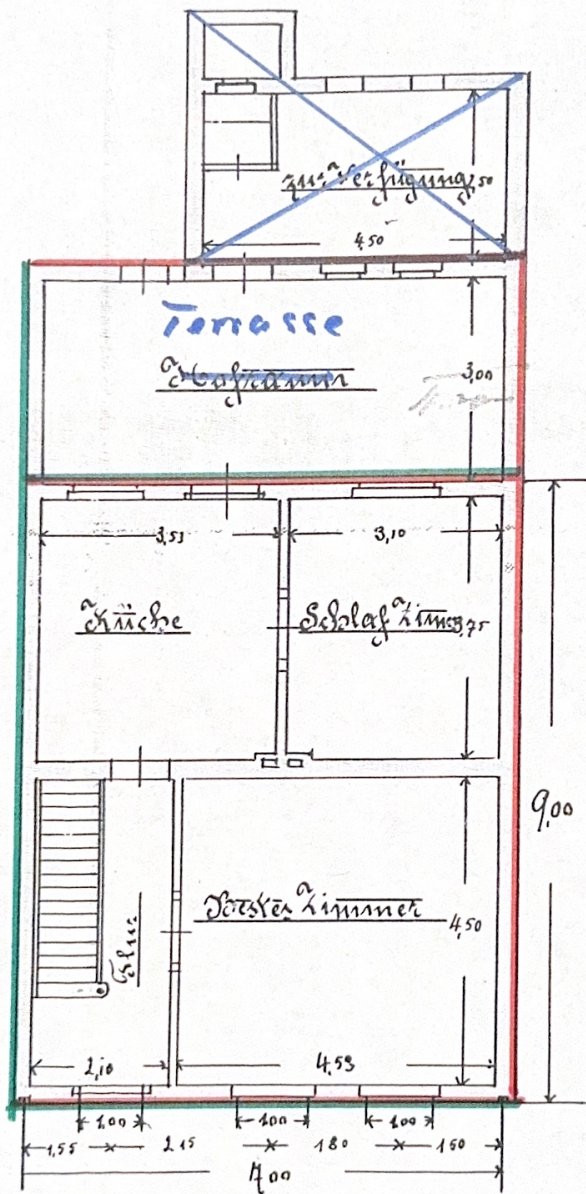 zur Verfügung
3,50
4.50
Terrasse
Hofraum
3,00
3,53
3,10
Küche
Schlaf Zim
3,75
9,00
Vorder Zimmer
4,50
Flur
2,10
4.53
1.00
1.00
1.00
1,55
2.15
180
150
7,00